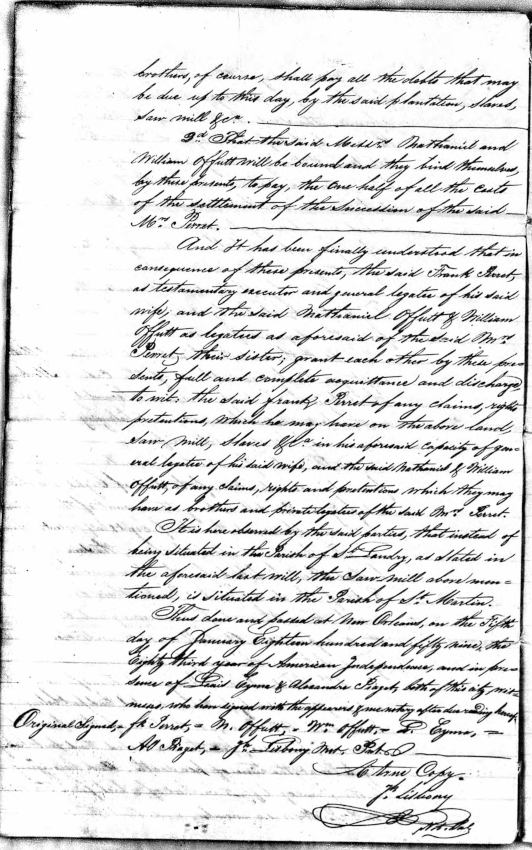 brothers, of course, shall pay all the debts that may
be due up to this day, by the said plantation, slaves,
Saw mill &ca.
2d That the said Messrs. Nathaniel and
William Offutt will be bound and they bind themselves,
by these presents, to pay, the One half of all the Costs
of the settlement of the Succession of the said
Mrs Perret.
And It has been finally understood that in
consequence of these presents, the said Frank Perret,
as testamentary executor and general legatee of his said
wife, and the said Nathaniel Offutt & William
Offutt as legatees as aforesaid of the said Mrs
Perret, their sister; grant each other by these pre=
sents, full and complete acquittance and discharge
to wit: the said frank Perret of any claims, rights
pretentions, which he may have on the above land,
Saw, mill, slaves &ca in his aforesaid Capacity of gen=
eral legatee of his said wife, and the said Nathaniel & William
Offutt, of any claims, rights and pretentions which they may
have as brothers and private legatees of the said Mrs. Perret.
It is here observed by the said parties, that instead of
being situated in the Parish of St. Landry, as stated in
the aforesaid last will, the Saw mill above men=
tioned, is situated in the Parish of St. Martin.
Thus done and passed at New Orleans, on the Fifth
day of January Eighteen hundred and fifty nine, the
Eighty third year of American Independence, and in pre=
sence of Louis & Alexandre both of this city, wit=
nesses, who have signed with the appearers & me notary after due reading hereof.
Original Signed, = fk Perret, = N. Offutt, = Wm Offutt, = L. =
= Jh Lisbony Not. Pub.
A true Copy.
Jh Lisbony
Not. Pub